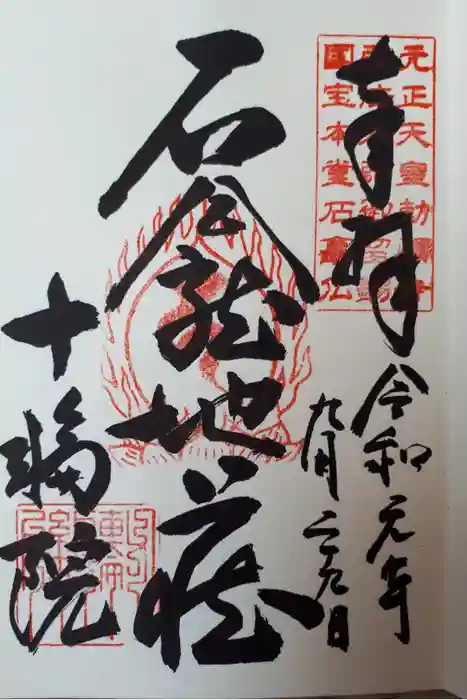 元正天皇勅願寺
国宝本堂石龕仏
奉拝
令和元年
九月二九日
石龕地蔵
十輪院